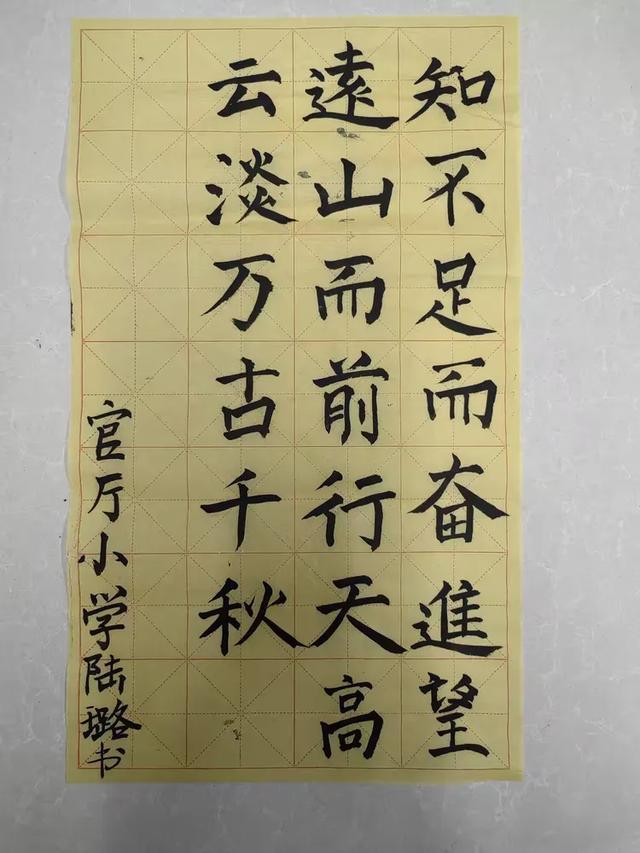 知不足而奋進望
遠山而前行天高
云淡万古千秋
官厅小学陆璐书